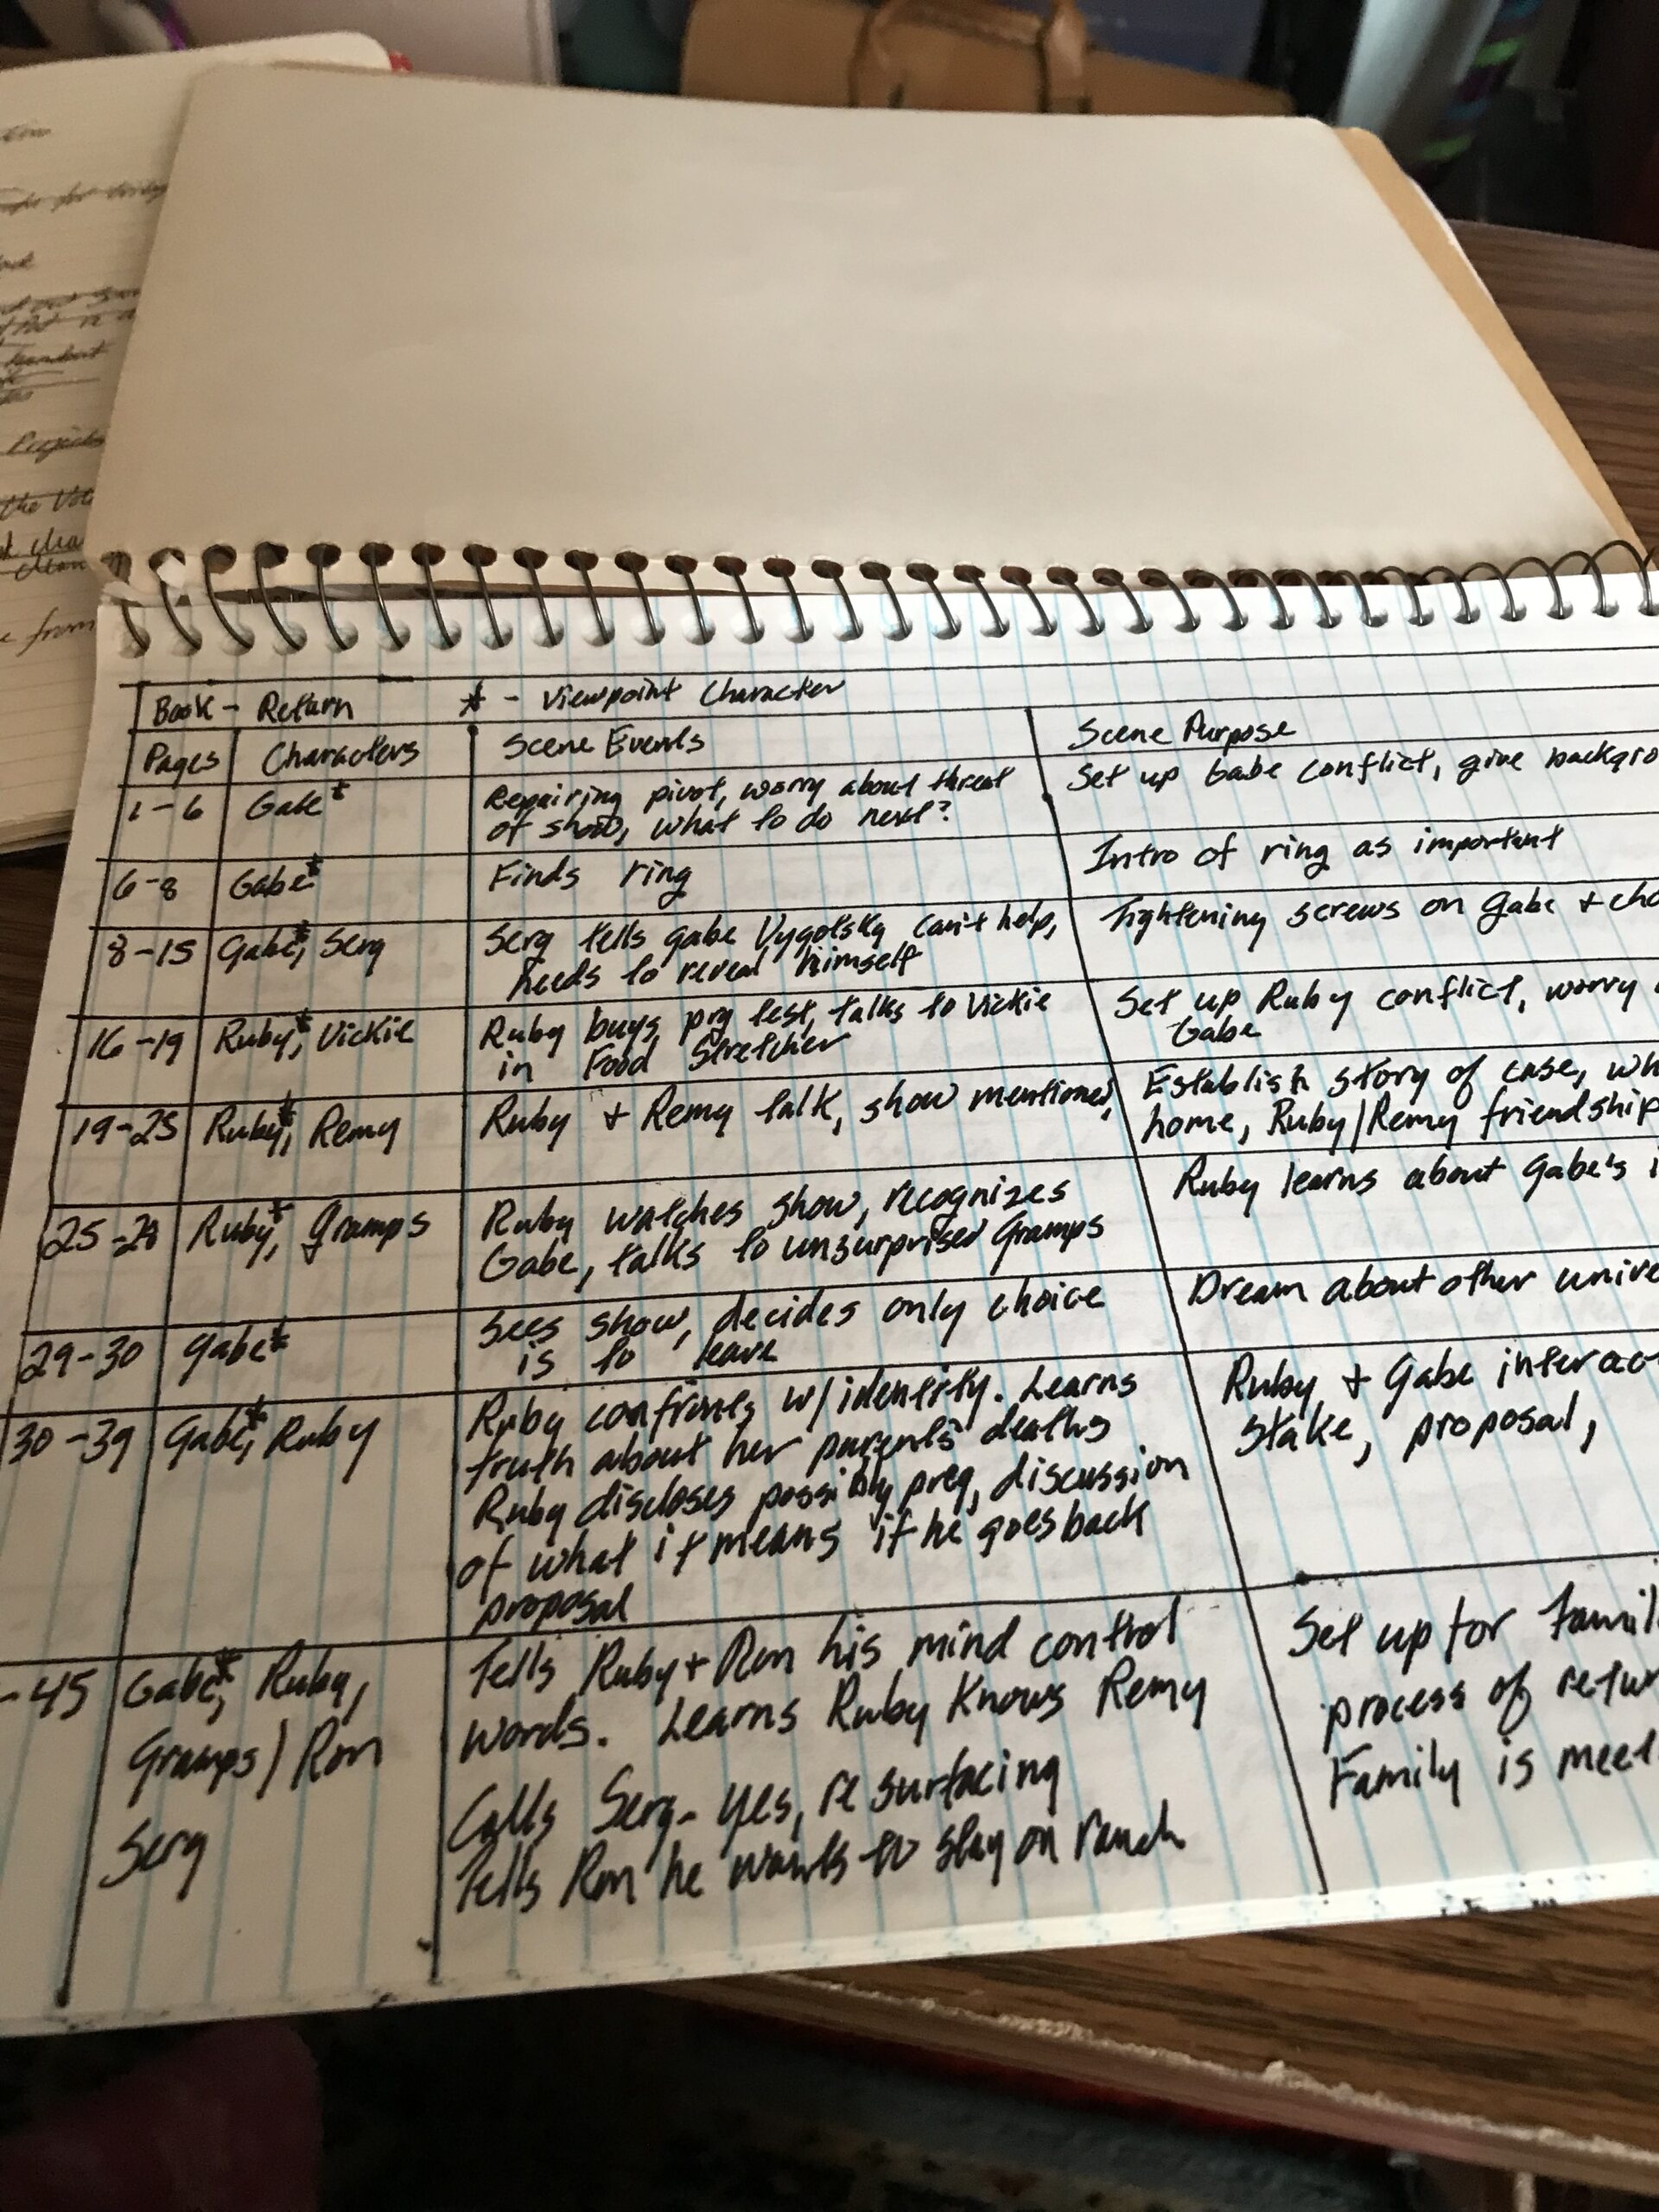 Book - Return * - Viewpoint Character
Pages Characters Scene Events Scene Purpose
1-6 Gabe* Repairing pivot, worry about threat Set up Gabe conflict, give backgro
of show, what to do next?
6-8 Gabe* Finds ring Intro of ring as important
8-15 Gabe*, Serg Serg tells gabe Vygotsky can't help, Tightening screws on gabe + cho
needs to reveal himself
16-19 Ruby*, Vickie Ruby buys prg test, talks to Vickie Set up Ruby conflict, worry
in Food Stretcher Gabe
19-25 Ruby*, Remy Ruby + Remy talk, show mentioned, Establish story of case, wh
home, Ruby/Remy friendship
25-28 Ruby*, Gramps Ruby watches show, recognizes Ruby learns about Gabe's i
Gabe, talks to unsurprised Gramps
29-30 Gabe* Sees show, decides only choice Dream about other unive
is to leave
30-39 Gabe*, Ruby Ruby confronts w/identity. Learns Ruby + Gabe interac
truth about her parents' deaths stake, proposal,
Ruby discloses possibly preg, discussion
of what it means if he goes back
proposal
-45 Gabe*, Ruby, Tells Ruby + Ron his mind control Set up for famil
Gramps/Ron words. Learns Ruby knows Remy process of retur
Serg Calls Serg- yes, resurfacing Family is meet
Tells Ron he wants to stay on ranch
Projects
the
e from